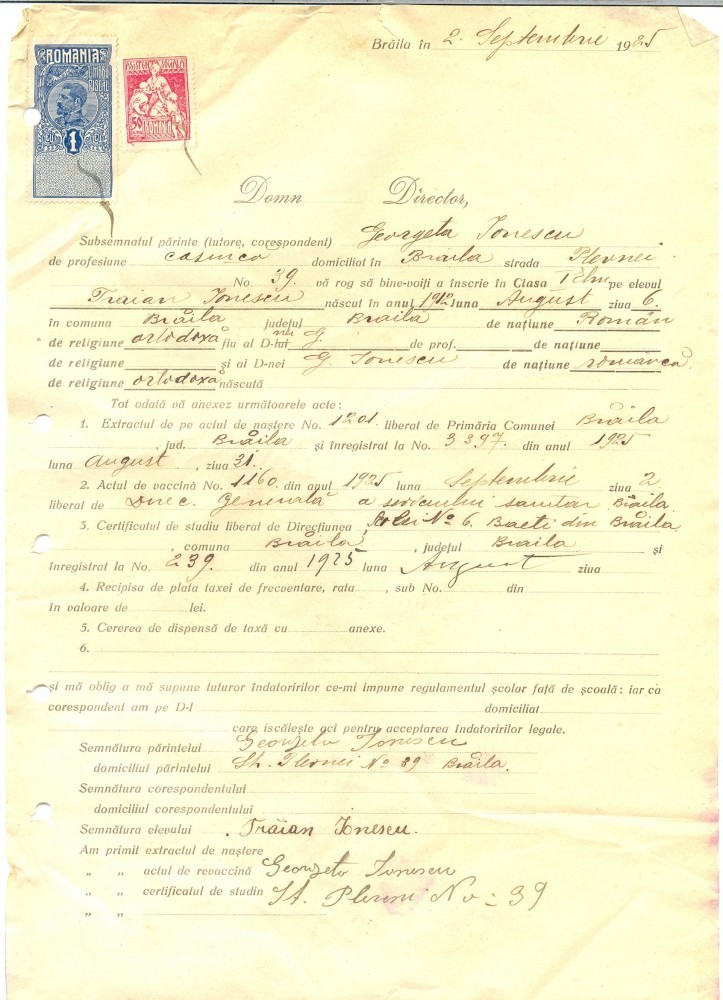 Brăila în 2. Septembrie 1925
ROMANIA
TIMBRU FISCAL
1
ASISTENȚA SOCIALA
50 ROMANIA
Domn Director,
Subsemnatul părinte (tutore, corespondent) Georgeta Ionescu
de profesiune casnică domiciliat în Brăila strada Plevnei
No. 39. vă rog să bine-voiți a înscrie în Clasa I pe elevul
Traian Ionescu născut în anul 1912 luna August ziua 6.
în comuna Brăila județul Brăila de națiune Român
de religiune ortodoxă fiu al D-lui G. de prof. de națiune
de religiune și al D-nei G. Ionescu de națiune româncă
de religiune ortodoxă născută
Tot odată vă anexez următoarele acte:
1. Extractul de pe actul de naștere No. 1201 liberat de Primăria Comunei Brăila
, jud. Brăila și înregistrat la No. 3397. din anul 1925
luna August, ziua 31.
2. Actul de vaccină No. 1160. din anul 1925 luna Septembrie ziua 2
liberat de Direc. Generală a serviciului sanitar Brăila
3. Certificatul de studiu liberat de Direcțiunea Școlei No 6. Baeti din Brăila
, comuna Brăila, județul Braila și
înregistrat la No. 239. din anul 1925 luna August ziua
4. Recipisa de plata taxei de frecventare, rata , sub No. din
în valoare de lei.
5. Cererea de dispensă de taxă cu anexe.
6.
și mă oblig a mă supune tuturor îndatoririlor ce-mi impune regulamentul școlar față de școală: iar ca
corespondent am pe D-l domiciliat
care iscălește aci pentru acceptarea îndatoririlor legale.
Semnătura părintelui Georgeta Ionescu
domiciliul părintelui St. Plevnei No 39 Brăila.
Semnătura corespondentului
domiciliul corespondentului
Semnătura elevului Trăian Ionescu.
Am primit extractul de naștere
„ „ actul de revaccină Georgeta Ionescu
„ „ certificatul de studin St. Plevni No = 39
„ „